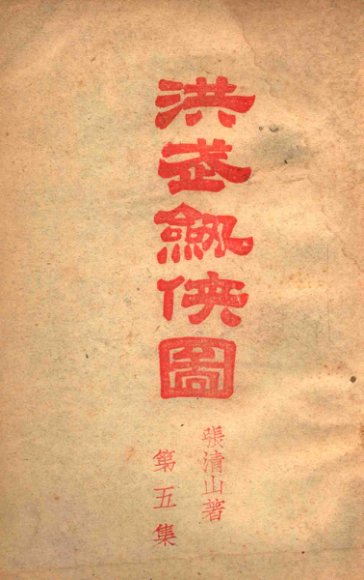 洪武劍俠圖
張清山著
第五集